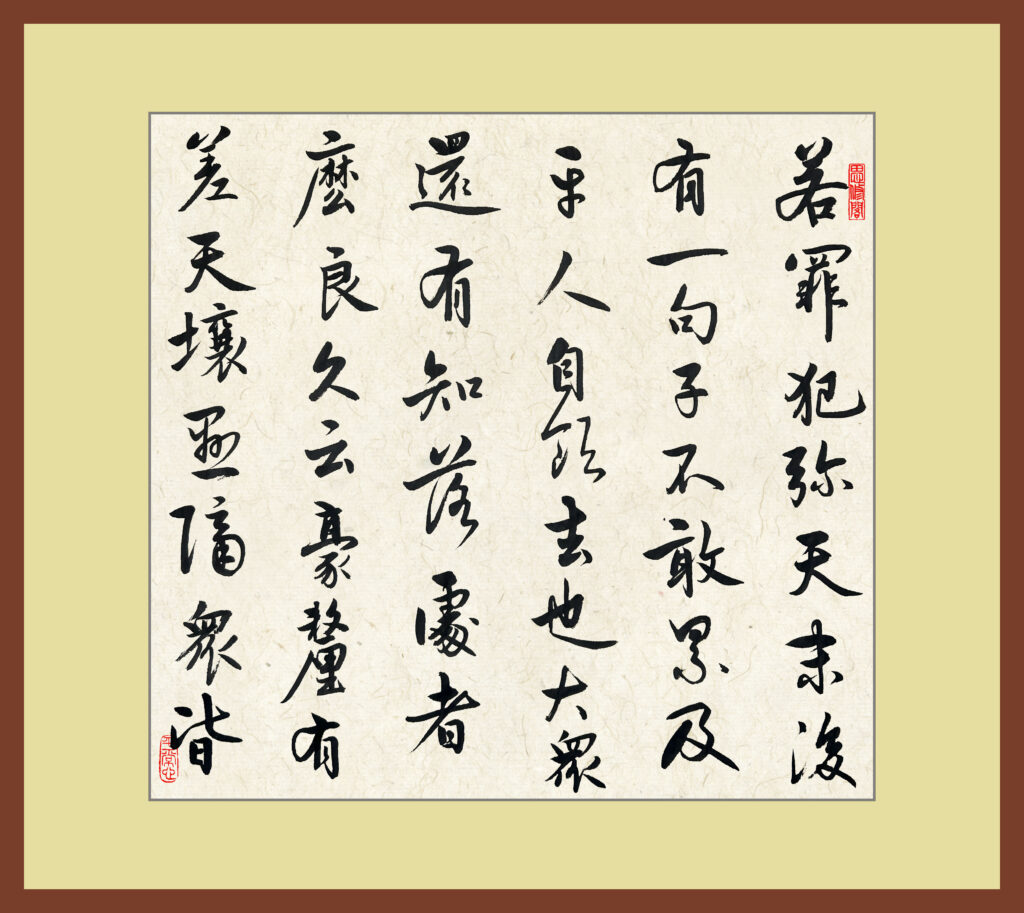 思修閣
若罪犯弥天末後
有一句子不敢累及
平人自領去也大衆
還有知落處者
麼良久云豪釐有
差天壤懸隔衆皆